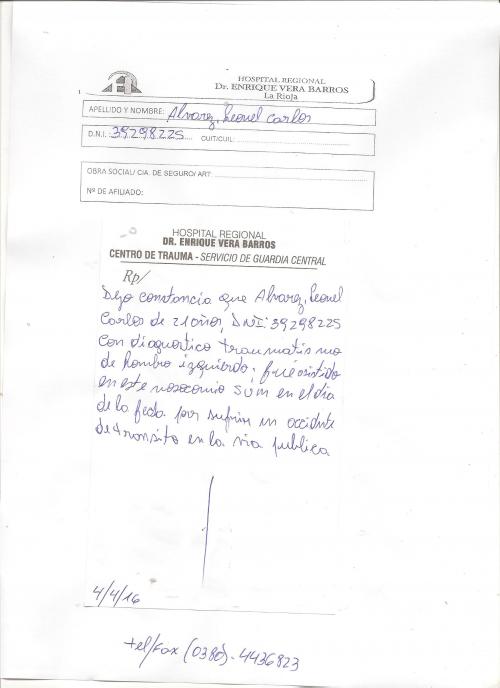 HOSPITAL REGIONAL
Dr. ENRIQUE VERA BARROS
La Rioja
APELLIDO Y NOMBRE: Alvarez, Leonel Carlos
D.N.I.: 39298225 CUIT/CUIL:
OBRA SOCIAL/ CIA. DE SEGURO/ ART:
Nº DE AFILIADO:
HOSPITAL REGIONAL
DR. ENRIQUE VERA BARROS
CENTRO DE TRAUMA - SERVICIO DE GUARDIA CENTRAL
Rp/
Dejo constancia que Alvarez, Leonel
Carlos de 21 años, DNI: 39298225
con diagnostico traumatismo
de hombro izquierdo; fué asistido
en este nosocomio en el dia
de la fecha por sufrir un accidente
de transito en la via publica
4/4/16
tel/Fax (0380)-4436823